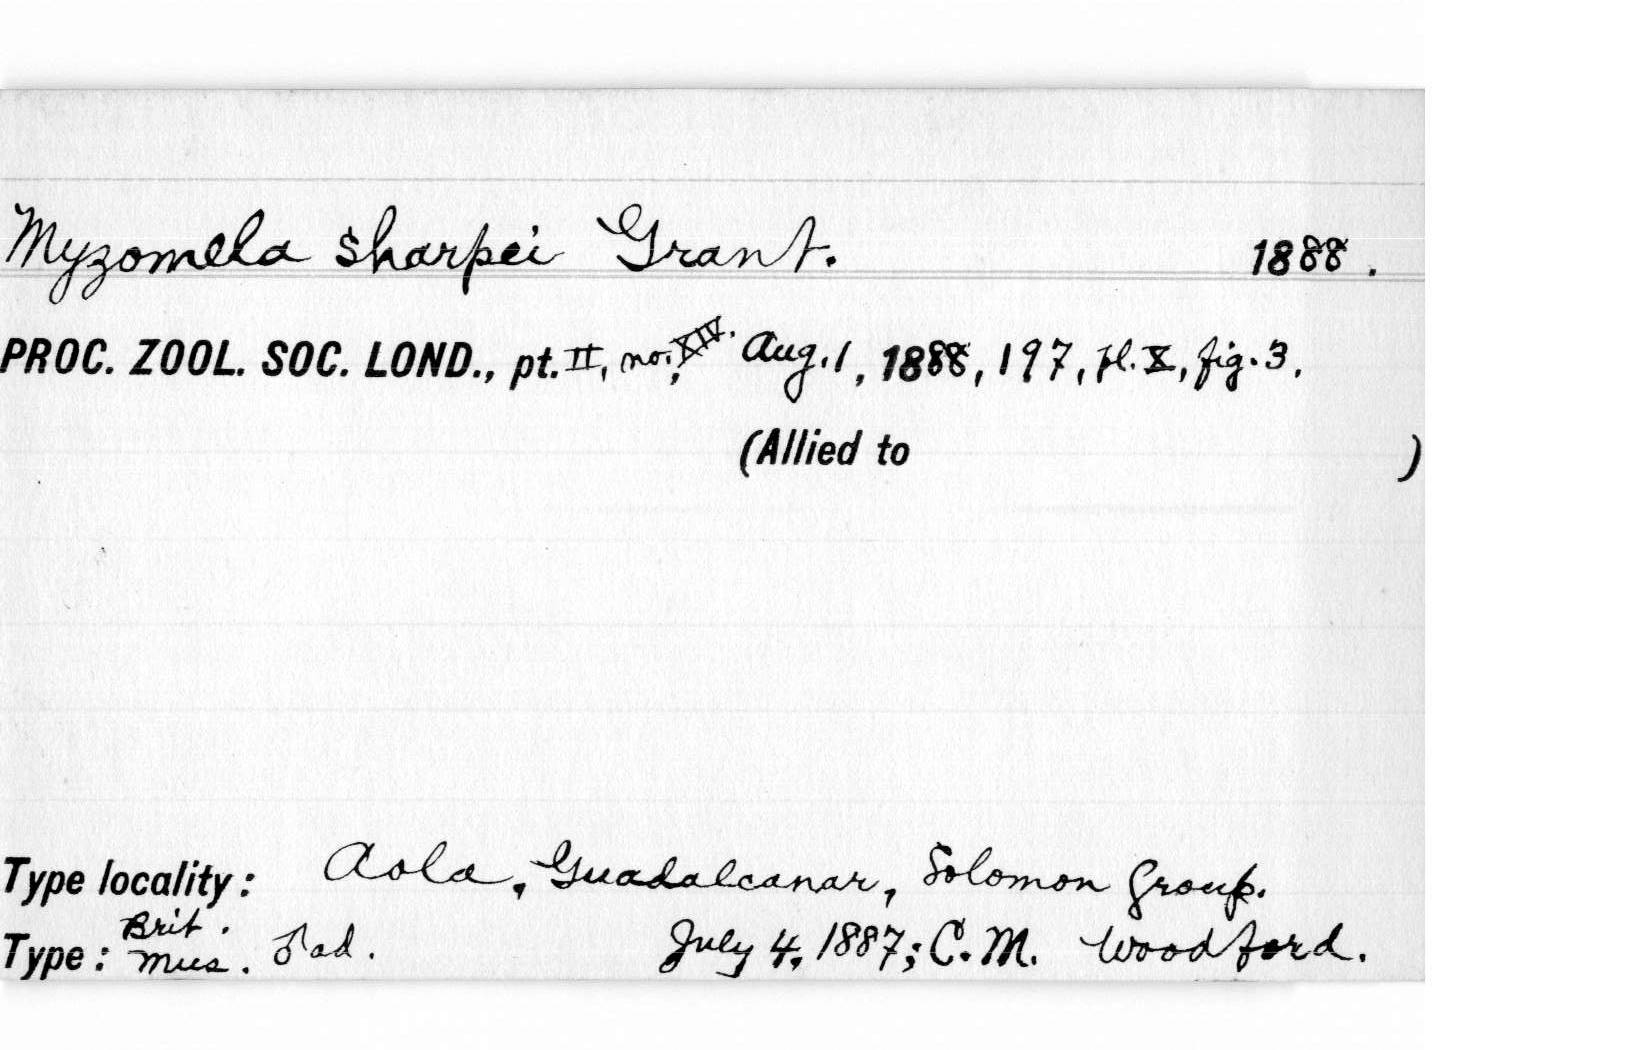 Myzomela sharpei Grant. 1888.
PROC. ZOOL. SOC. LOND., pt. II, no. XIV. Aug. 1, 1888, 197, pl. X, fig. 3.
(Allied to )
Type locality: Aola, Guadalcanar, Solomon Group.
Type: Brit. Mus. ♂ ad. July 4, 1887; C. M. Woodford.